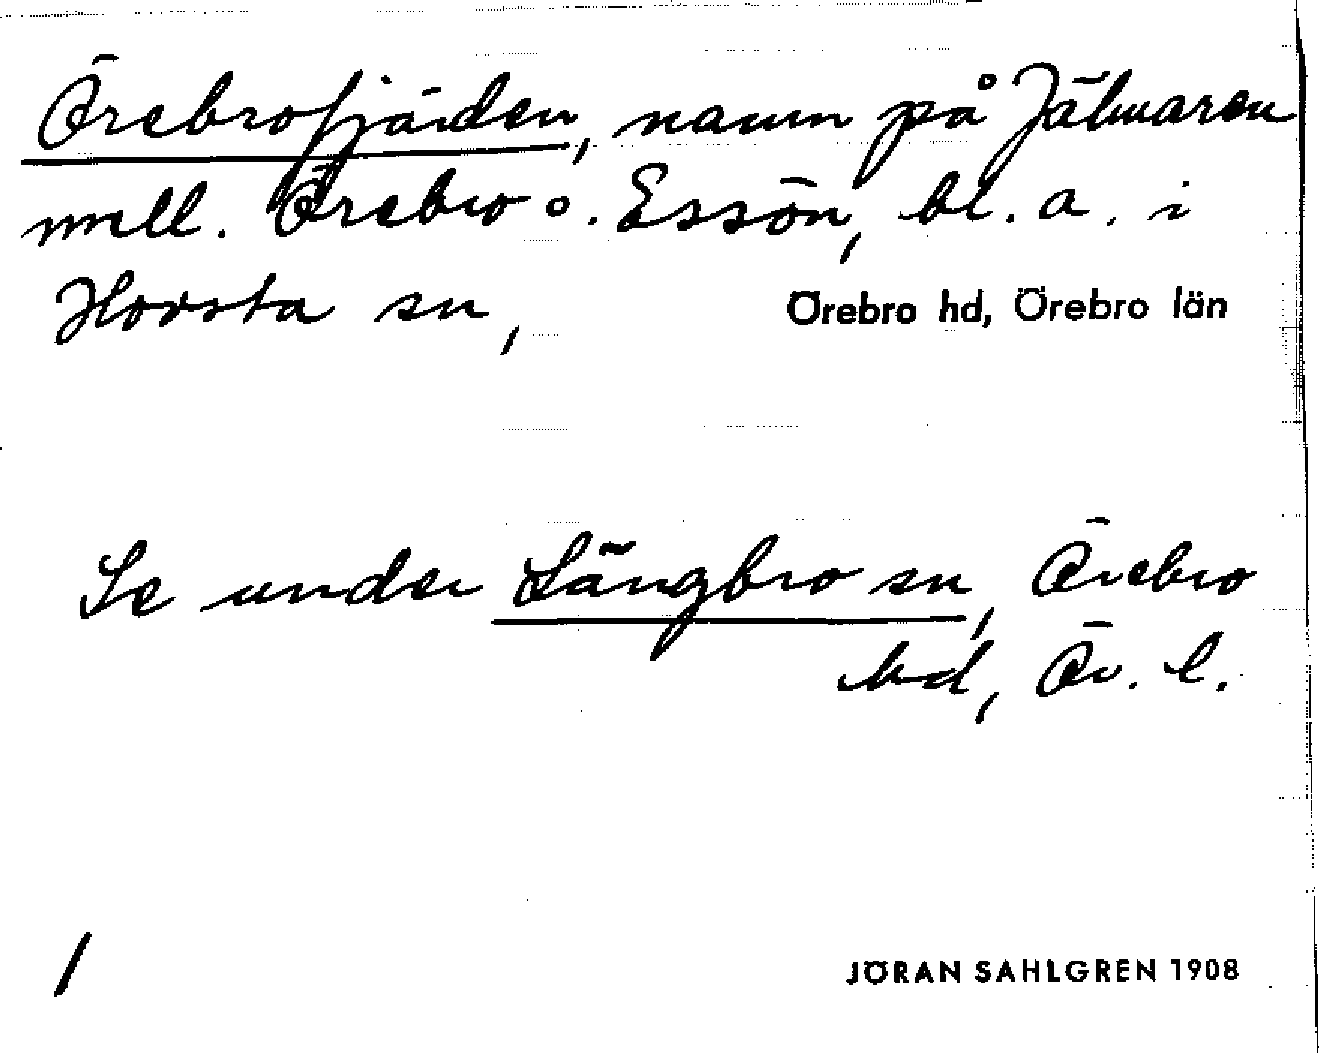 Örebrofjärden, namn på Jälmaren
mell. Örebro o. Essön, bl. a. i
Hovsta sn, Örebro hd, Örebro län
Se under Längbro sn, Örebro
hd, Ör. l.
1
JÖRAN SAHLGREN 1908